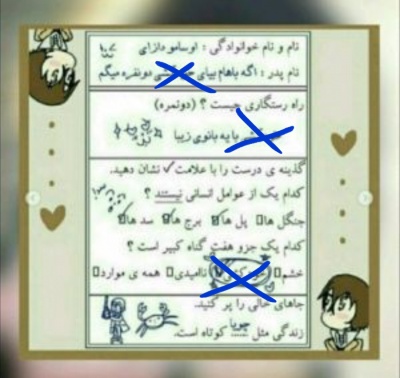 نام و نام خوانوادگی : اوسامو دازای
نام پدر : اگه باهام بیای دونفره میگم
راه رستگاری چیست ؟ (دونمره)
با یه بانوی زیبا
گذینه ی درست را با علامت ✓ نشان دهید.
کدام یک از عوامل انسانی نیستند ؟
جنگل ها پل ها برج ها سد ها
کدام یک جزو هفت گناه کبیر است ؟
خشم ناامیدی همه ی موارد
جاهای خالی را پر کنید.
زندگی مثل چوپا کوتاه است.